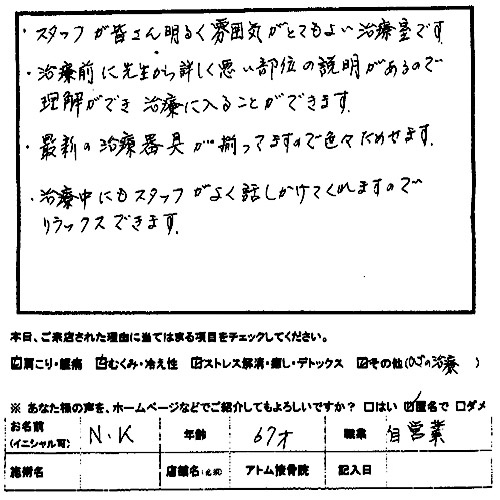 ・スタッフが皆さん明るく雰囲気がとてもよい治療室です
・治療前に先生から詳しく悪い部位の説明があるので
理解ができ 治療に入ることができます.
・最新の治療器具が揃ってますので色々ためせます.
・治療中にもスタッフがよく話しかけてくれますので
リラックスできます.
本日、ご来店された理由に当てはまる項目をチェックしてください。
☑肩こり・腰痛 ☑むくみ・冷え性 ☑ストレス解消・癒し・デトックス ☑その他(の治療 )
※ あなた様の声を、ホームページなどでご紹介してもよろしいですか? □はい ☑匿名で □ダメ
お名前 (イニシャル可) N.K 年齢 67才 職業 自営業
施術名 店舗名(必須) アトム接骨院 記入日